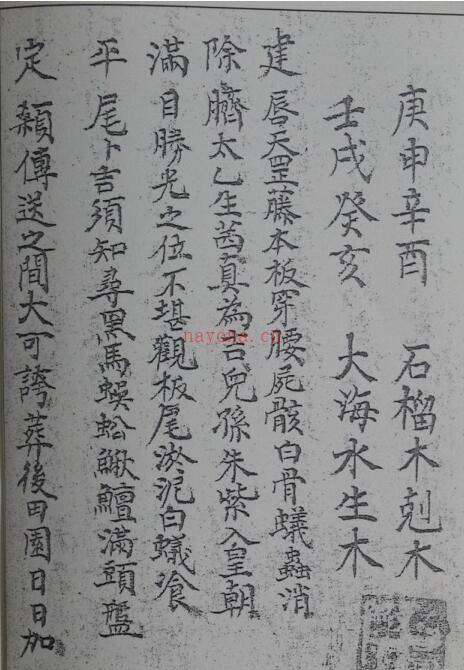 庚申辛酉　石榴木剋木
壬戌癸亥　大海水生木
建　唇天罡藤本板穿腰屍骸白骨蟻蟲消
除　臍太乙生茜真為吉兒孫朱紫入皇朝
滿　目勝光之位不堪觀板尾淤泥白蟻飡
平　尾卜吉須知尋黑馬蜈蚣鰍鱣滿頭盤
定　顙傳送之間大可誇葬後田園日日加
nayona.cn